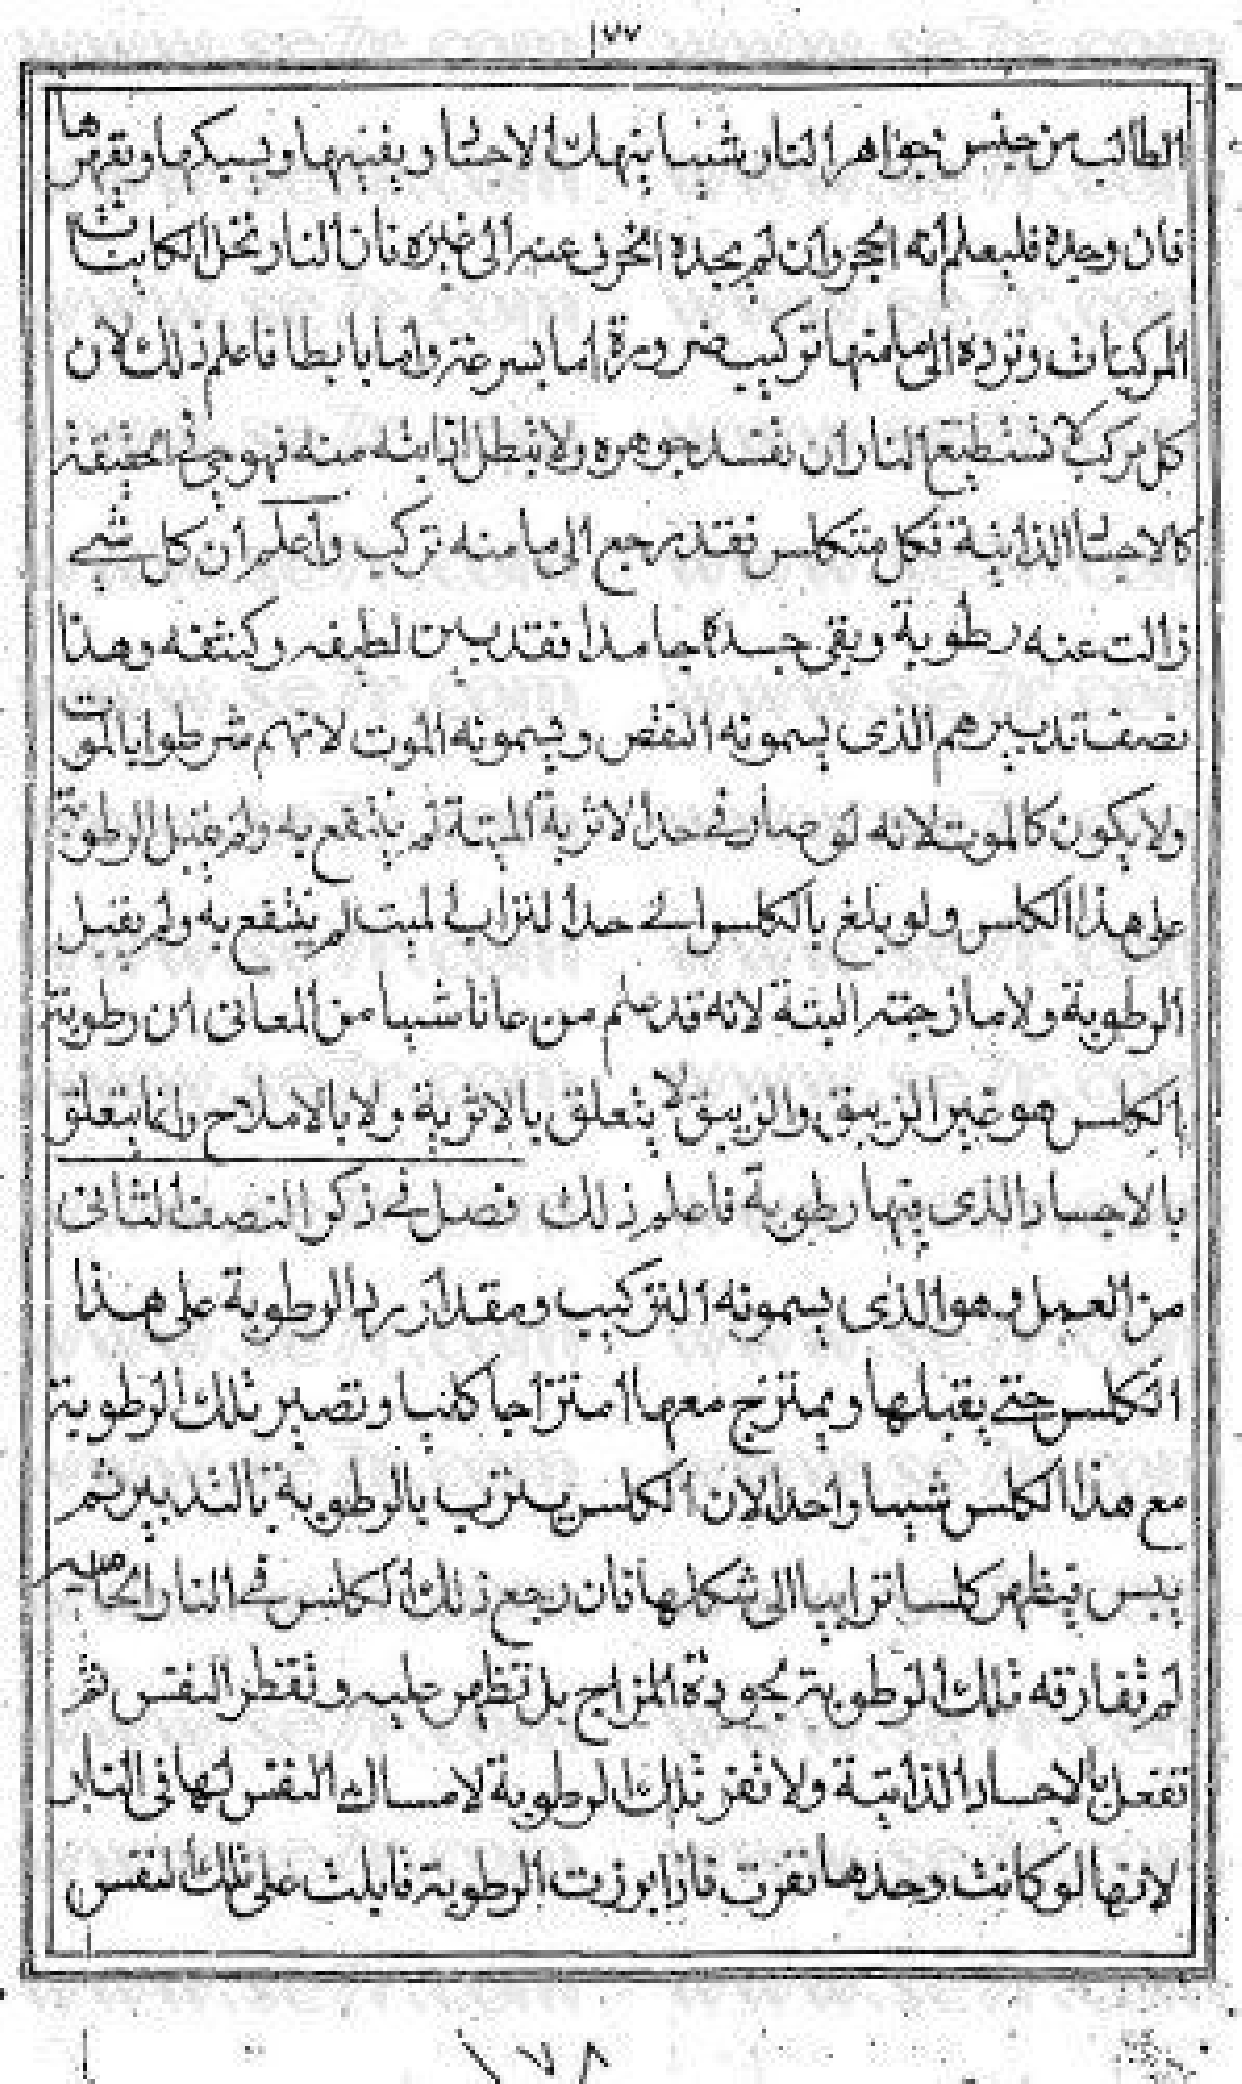 ١٧٧
الطالب من جنس جواهر النار شيئا ينهك الاجسا ويفنيها ويسبكها ويقهرها
فان وجده فليعلم انه الحجر وان لم يجده انحرف عنه الى غيره فان النار تحل الكاينات
المركبات وترده الى ما منها تركيب ضرورة اما بسرعة واما بابطا فاعلم ذلك لان
كل مركب لا تستطيع النار ان تفسد جوهره ولا تبطل انا بته منه فهو حي في الحقيقة
كالاجسا الذائبة فكل متكلس فقد رجع الى ما منه تركب واعلم ان كل شيء
زالت عنه رطوبة وبقى جسده جامدا فقد بين لطيفه وكثفه وهذا
نصف تدبيرهم الذى يسمونه النقض ويسمونه الموت لانهم شرطوا بالموت
ولا يكون كالموت لانه لو صار في حد الاتربة الميتة لم ينتفع به ولم يقبل الرطوبة
على هذا الكلس ولو بلغ بالكلس الى حد التراب الميت لم ينتفع به ولم يقبل
الرطوبة ولا مازجته البتة لانه قد علم من عانا شيا من المعانى ان رطوبة
الكلس هو غير الزيبق والزيبق لا يتعلق بالاتربة ولا بالاملاح وانما يتعلق
بالاجساد الذى فيها رطوبة فاعلم ذلك فصل في ذكر النصف الثانى
من العمل وهو الذى يسمونه التركيب ومقدار رد الرطوبة على هذا
الكلس حتى يقبلها ويمتزج معها امتزاجا كليا وتصير تلك الرطوبة
مع هذا الكلس شيا واحدا لان الكلس يشرب بالرطوبة بالتدبير ثم
ييبس فيظهر كلسا ترابيا الى شكلها فان رجع ذلك الكلس في النار الحامية
لم تفارقه تلك الرطوبة بجودة المزاج بل تظهر عليه وتقطر النفس ثم
تفعل بالاجساد الذائبة ولا تفر تلك الرطوبة لامساك النفس لها فى النار
لانها لو كانت وحدها تفرت فاذا برزت الرطوبة قابلت على تلك النفس
١٧٨